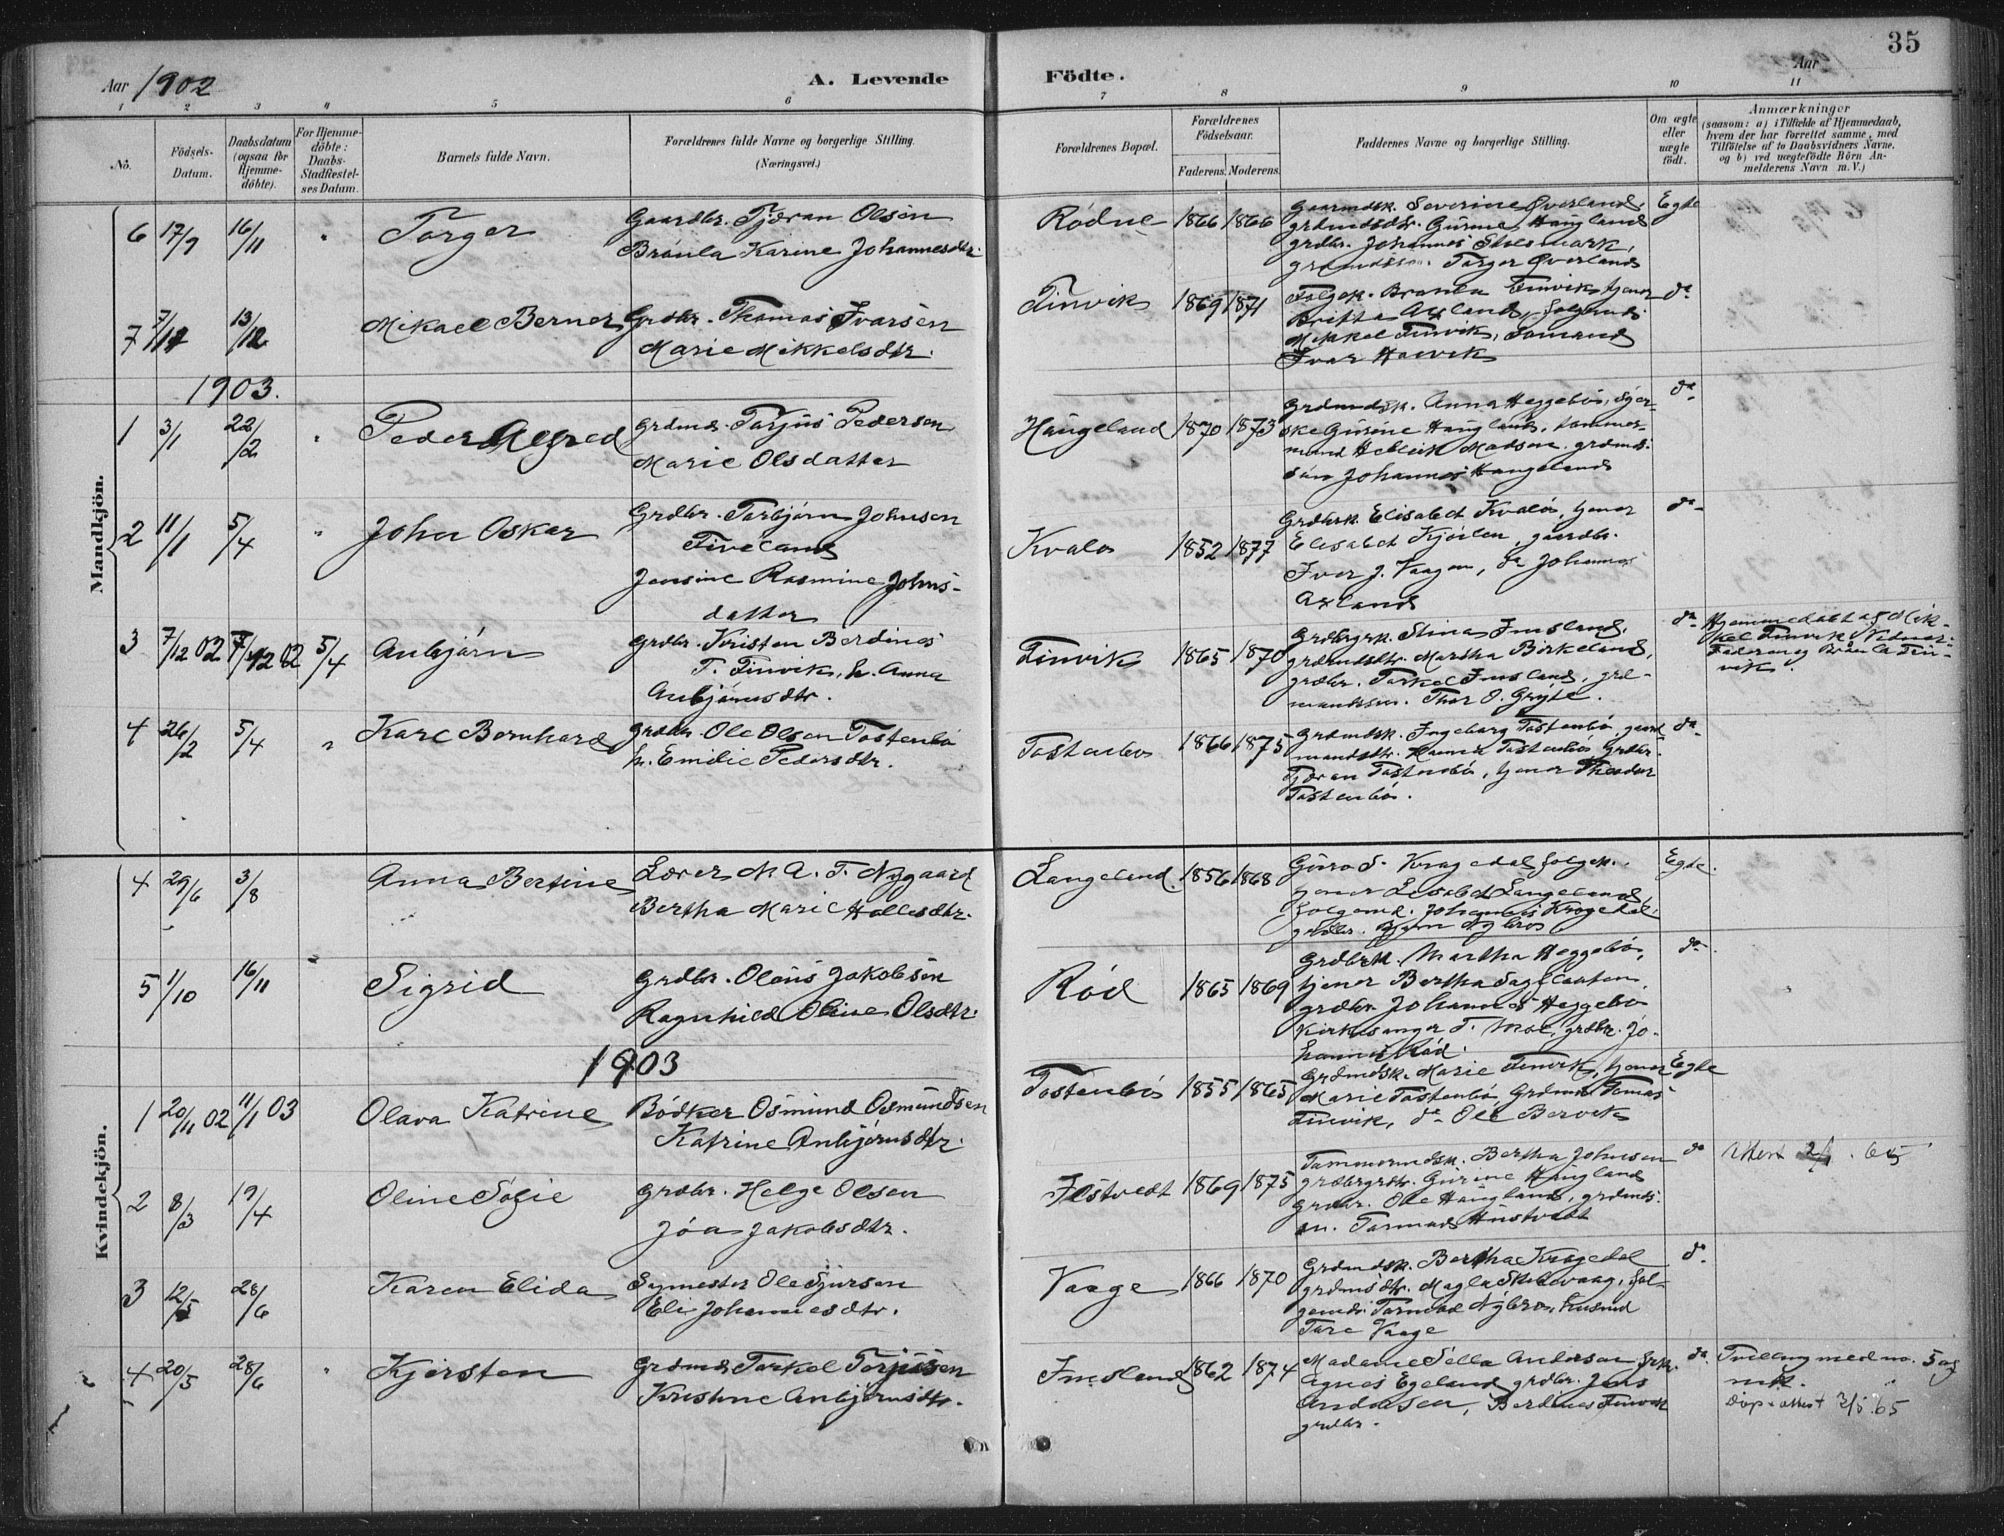 35
Aar 1902
A. Levende Födte.
Aar
1 2 3 4 5 6 7 8 9 10 11
No.
Födsels-Datum.
Daabsdatum (ogsaa for Hjemme-döbte).
For Hjemme-döbte: Daabs-Stadfæstel-ses Datum.
Barnets fulde Navn.
Forældrenes fulde Navne og borgerlige Stilling. (Næringsvei.)
Forældrenes Bopæl.
Forældrenes Födselsaar.
Faderens. Moderens.
Faddernes Navne og borgerlige Stilling.
Om ægte eller uægte födt.
Anmærkninger
(saasom: a) i Tilfælde af Hjemmedaab,
hvem der har forrettet samme, med
Tilföielse af to Daabsvidners Navne.
og b) ved uægtefödte Börn An-
melderens Navn m.V.)
Mandkjön.
6 17/9 16/11 " Torger
Gaardbr. Tjøran Olsen
Brønla Karine Johannesdtr.
Rødne 1866 1866
Gaarmdsk. Severine Øverland,
grdmdsdtr. Gurine Haugland
grdbr. Johannes Stolsmark,
Torger Øverland
Egte
7 7/11 13/12 Mikael Berner
Grdbr. Thomas Ivarsen
Marie Mikkelsdtr.
Finvik 1869 1871
Folgek. Bronla Finvik, tjener
Britha Axland, folgemd.
Mikkel Finvik,
Ivar
do
1903.
1 3/1 22/2 " Peder Alfred
grdmd. Torjus Pedersen
Marie Olsdatter
Haugeland 1870 1873
Grdmdsk. Anna Heggebø,
Gurine Haugland, tømmer-
mand Madsen, grdmds-
søn Johannes Haugeland
do
2 11/1 5/4 " Johan Oskar
Grdbr. Torbjørn Johnsen
Tveland
Jensine Rasmine Johns-
datter
Kvalø 1852 1877
Grdbrk. Elisabet Kvalø, tjener
Elisabet gaardbr.
Iver J. Vaagen, do Johannes
Axland
do
3 7/12 02 7/12 02 5/4 Anbjørn
Grdbr. Kristen Berdines
T. Finvik, h. Anna
Anbjørnsdtr.
Finvik 1865 1870
Grdbrgrk. Stina Imsland,
grdmndsdtr. Martha Birkeland,
grdbr. Torkel Imsland, grd-
mandssøn. Thor O. Grøte.
do
Hjemmedøbt af Mik-
kel Finvik Vidner:
Faderen og Brønla Fin-
vik
4 26/2 5/4 " Karl Bernhard
Grdbr. Ole Olsen Tostenbø
h. Emilie Pedersdtr.
Tostenbø 1866 1875
Grdmdsk. Ingeborg Tostenbø, gaard-
mandsdtr. Tostenbø Grdbr.
Tjøran Tostenbø, tjener Theodor
Tostenbø.
do
Kvindekjön.
4 29/6 3/8 Anna Bertine
Lærer M. A. T. Nygaard
Bertha Marie Hollesdtr.
Langeland. 1856 1868
Guro S. Kragedal folgek.
tjener Lisabet Langeland,
folgemd. Johannes Krogedal,
grdbr. Bjørn Nybro
Egte.
5 1/10 16/11 Sigrid
Grdbr. Olaus Jakobsen
Ragnhild Oline Olsdtr.
Rød 1865 1869
Grdbrk. Martha Heggebø,
tjener Bertha
grdbr. Johannes Heggebø
Kirkesanger T. Moe, grdbr. Jo-
hannes Rød.
do
1903
1 20/11 02 11/1 03 Olava Katrine
Bødker Osmund Osmundsen
Katrine Anbjørnsdtr.
Tostenbø 1855 1865
Grdmdsk. Marie Finvik, tjener
Marie Tostenbø, Grdmd. Tomas
Finvik, do Ole Bervik
Egte
2 8/3 19/4 Oline Sofie
Grdbr. Helge Olsen
Jóa Jakobsdtr.
Ilstvedt 1869 1875
Tømmermdsk. Bertha Johnsen
grdbrgrdtr. Gurine Haugland
Grdbr. Ole Haugland, grdmds-
sn. Tormod Hustvedt
do
3 12/5 28/6 Karen Elida
Symester Ole Sjursen
Eli Johannesdtr.
Vaage 1866 1870
Grdmdsk. Bertha Krogedal
grdmdsdtr. Magla Skeievaag, fol-
gemd. Tormod Nybro, husmd
Tore Vaage
do
4 20/5 28/6 " Kjersten
Grdmd. Torkel Torjusen
Kristine Anbjørnsdtr.
Imsland 1862 1874
Madame Sella Andersen frk.
Agnes Egeland grdbr. Jens
Andersen, Berdines Finvik
grdbr.
do
Tvilling med no. 5 af
mk.
Døp.attest 3/5.65